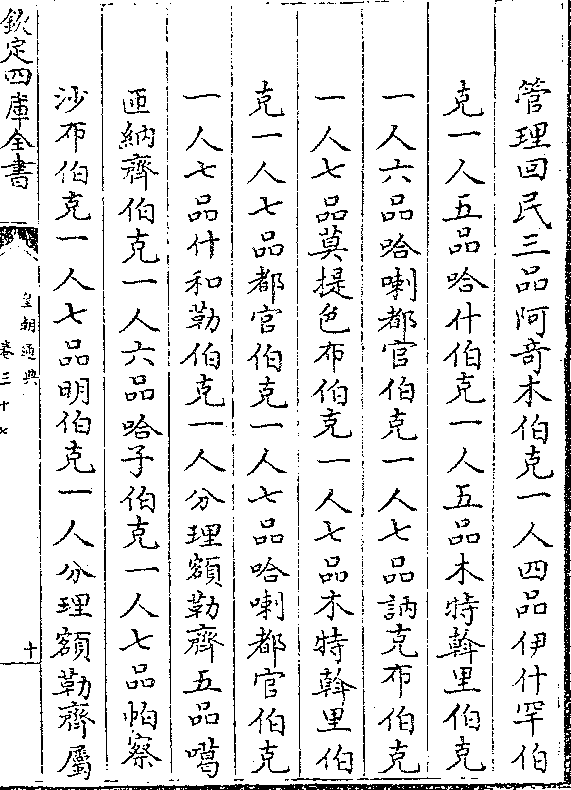 管理回民三品阿竒木伯克一人四品伊什罕伯
克一人五品哈什伯克一人五品木特斡里伯克
一人六品哈喇都官伯克一人七品訥克布伯克
一人七品莫提色布伯克一人七品木特斡里伯
克一人七品都官伯克一人七品哈喇都官伯克
一人七品什和勒伯克一人分理額勒齊五品噶
匝納齊伯克一人六品哈子伯克一人七品帕察
沙布伯克一人七品明伯克一人分理額勒齊屬
欽定四庫全書
皇朝通典
卷三十
十